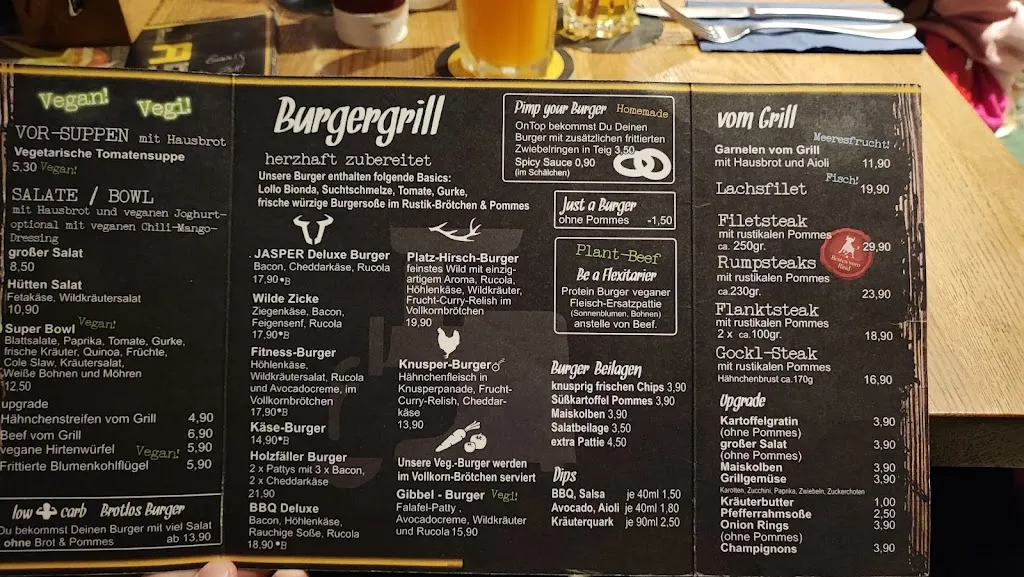 Vegan!
Vegi!
VOR-SUPPEN mit Hausbrot
Vegetarische Tomatensuppe
5,30 Vegan!
SALATE / BOWL
mit Hausbrot und veganen Joghurt-
optional mit veganen Chili-Mango-
Dressing
großer Salat
8,50
Hütten Salat
Fetakäse, Wildkräutersalat
10,90
Super Bowl Vegan!
Blattsalate, Paprika, Tomate, Gurke,
frische Kräuter, Quinoa, Früchte,
Cole Slaw, Kräutersalat,
Weiße Bohnen und Möhren
12,50
upgrade
Hähnchenstreifen vom Grill 4,90
Beef vom Grill 6,90
vegane Hirtenwürfel Vegan! 5,90
Frittierte Blumenkohlflügel 5,90
low carb Brotlos Burger
Du bekommst Deinen Burger mit viel Salat
ohne Brot & Pommes ab 13,90
Burgergrill
herzhaft zubereitet
Unsere Burger enthalten folgende Basics:
Lollo Bionda, Suchtschmelze, Tomate, Gurke,
frische würzige Burgersoße im Rustik-Brötchen & Pommes
JASPER Deluxe Burger
Bacon, Cheddarkäse, Rucola
17,90 •B
Wilde Zicke
Ziegenkäse, Bacon,
Feigensenf, Rucola
17,90 •B
Fitness-Burger
Höhlenkäse,
Wildkräutersalat, Rucola
und Avocadocreme, im
Vollkornbrötchen
17,90 •B
Käse-Burger
14,90 •B
Holzfäller Burger
2 x Pattys mit 3 x Bacon,
2 x Cheddarkäse
21,90
BBQ Deluxe
Bacon, Höhlenkäse,
Rauchige Soße, Rucola
18,90 •B
Platz-Hirsch-Burger
feinstes Wild mit einzig-
artigem Aroma, Rucola,
Höhlenkäse, Wildkräuter,
Frucht-Curry-Relish im
Vollkornbrötchen
19,90
Knusper-Burger
Hähnchenfleisch in
Knusperpanade, Frucht-
Curry-Relish, Cheddar-
käse
13,90
Unsere Veg.-Burger werden
im Vollkorn-Brötchen serviert
Gibbel - Burger Vegi!
Falafel-Patty ,
Avocadocreme, Wildkräuter
und Rucola 15,90
Pimp your Burger Homemade
OnTop bekommst Du Deinen
Burger mit zusätzlichen frittierten
Zwiebelringen in Teig 3,50
Spicy Sauce 0,90
(im Schälchen)
Just a Burger
ohne Pommes -1,50
Plant-Beef
Be a Flexitarier
Protein Burger veganer
Fleisch-Ersatzpattie
(Sonnenblumen, Bohnen)
anstelle von Beef.
Burger Beilagen
knusprig frischen Chips 3,90
Süßkartoffel Pommes 3,90
Maiskolben 3,90
Salatbeilage 3,50
extra Pattie 4,50
Dips
BBQ, Salsa je 40ml 1,50
Avocado, Aioli je 40ml 1,80
Kräuterquark je 90ml 2,50
vom Grill
Meeresfrucht!
Garnelen vom Grill
mit Hausbrot und Aioli 11,90
Fisch!
Lachsfilet 19,90
Filetsteak
mit rustikalen Pommes
ca. 250gr. 29,90
Bestes vom
Rind
Rumpsteaks
mit rustikalen Pommes
ca.230gr. 23,90
Flanktsteak
mit rustikalen Pommes
2 x ca.100gr. 18,90
Gockl-Steak
mit rustikalen Pommes
Hähnchenbrust ca.170g 16,90
Upgrade
Kartoffelgratin 3,90
(ohne Pommes)
großer Salat 3,90
(ohne Pommes)
Maiskolben 3,90
Grillgemüse 3,90
Karotten, Zucchini, Paprika, Zwiebeln, Zuckerchoten
Kräuterbutter 1,00
Pfefferrahmsoße 2,50
Onion Rings 3,90
(ohne Pommes)
Champignons 3,90